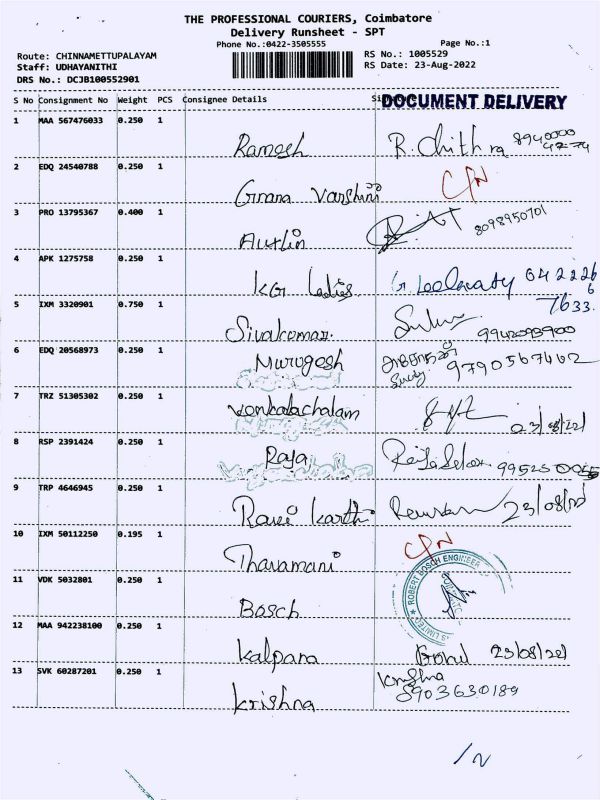 THE PROFESSIONAL COURIERS, Coimbatore
Delivery Runsheet - SPT
Phone No.:0422-3505555 Page No.:1
Route: CHINNAMETTUPALAYAM RS No.: 1005529
Staff: UDHAYANITHI RS Date: 23-Aug-2022
DRS No.: DCJB100552901
S No Consignment No Weight PCS Consignee Details DOCUMENT DELIVERY
1 MAA 567476033 0.250 1
Ramesh R. Chithra
2 EDQ 24540788 0.250 1
Gnana Varshini
3 PRO 13795367 0.400 1
Autlin 8098950701
4 APK 1275758 0.250 1
KGr Ladies
5 IXM 3320901 0.750 1
Sivakumar.
6 EDQ 20568973 0.250 1
Murugesh 9790567462
7 TRZ 51305302 0.250 1
Venkatachalam
8 RSP 2391424 0.250 1
Raja
9 TRP 4646945 0.250 1
Ravi Karthi 23/08/22
10 IXM 50112250 0.195 1
Tharamani
11 VDK 5032801 0.250 1
Bosch ROBERT BOSCH ENGINEER
12 MAA 942238100 0.250 1
Kalpana Gokul 23/08/22
13 SVK 60287201 0.250 1
Krishna Krishna
8903630189